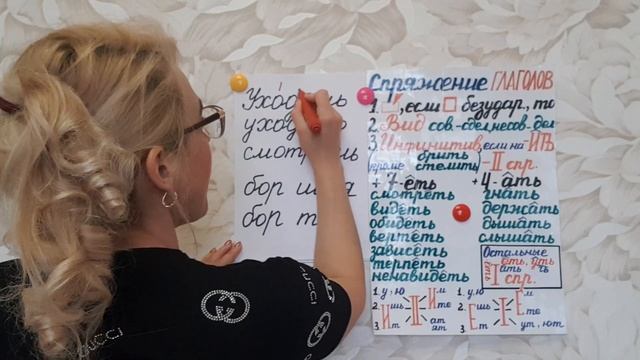 смотр
бор
бор т
Спряжение ГЛАГОЛОВ
1. , если безудар, то
2. Вид сов.-сделнесов.-дел
3. Инфинитив, если на ИТЬ
кроме брить стелить
- II спр.
+ 7-еть
смотреть
видеть
обидеть
вертеть
зависеть
терпеть
ненавидеть
+ 4-ать
гнать
держать
дышать
слышать
Остальные
еть, уть
ать
I спр.
1. у, ю
2. ишь II
3. ит
Им
Ите
ат
ят
1. у, ю
2. Ешь I
3. Ет
Ем
Ете
ут, ют
GUCCI
GUCCI